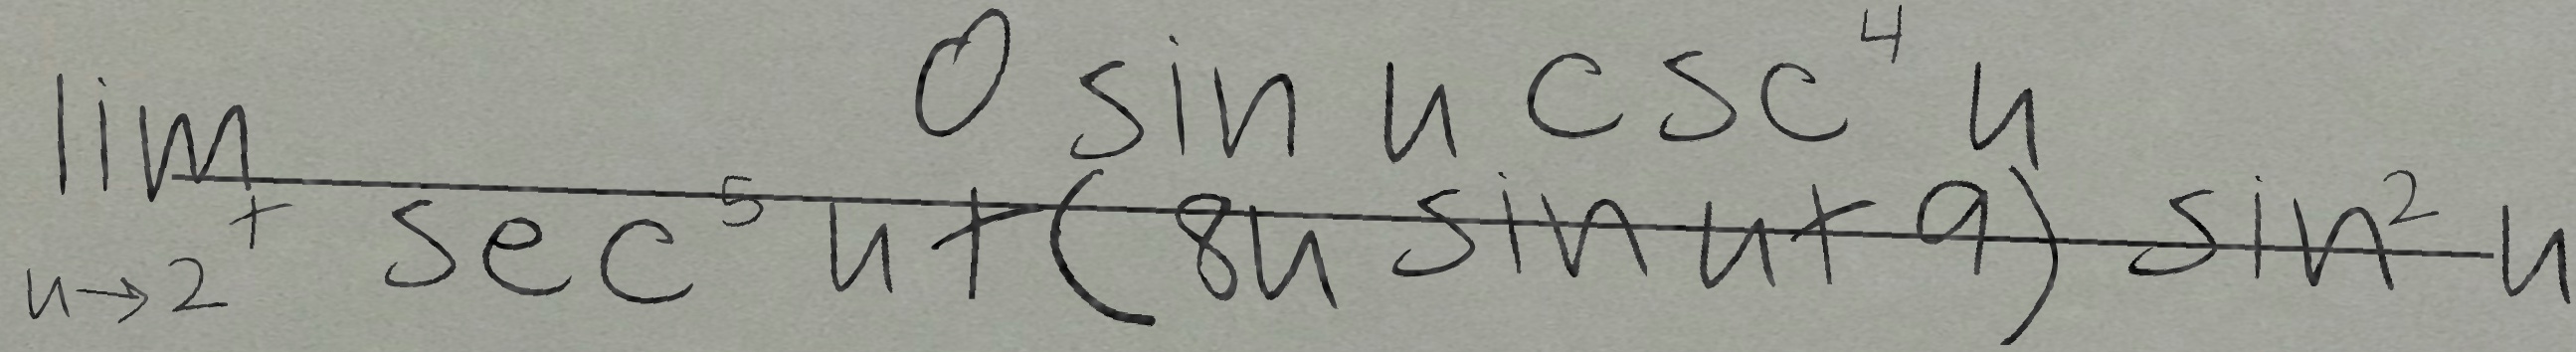 \lim_{u \to 2^{+}} \frac{0 \sin u \csc^{4} u}{\sec^{5} u + (8u \sin u + 9) \sin^{2} u}